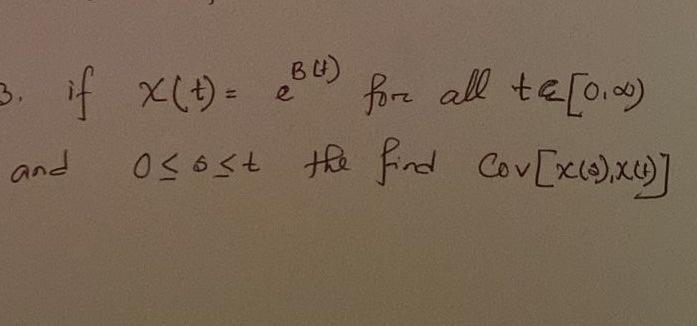 3. if X(t) = e^B(t) for all t ∈ [0,∞)
and 0 ≤ s ≤ t the find Cov[X(s),X(t)]